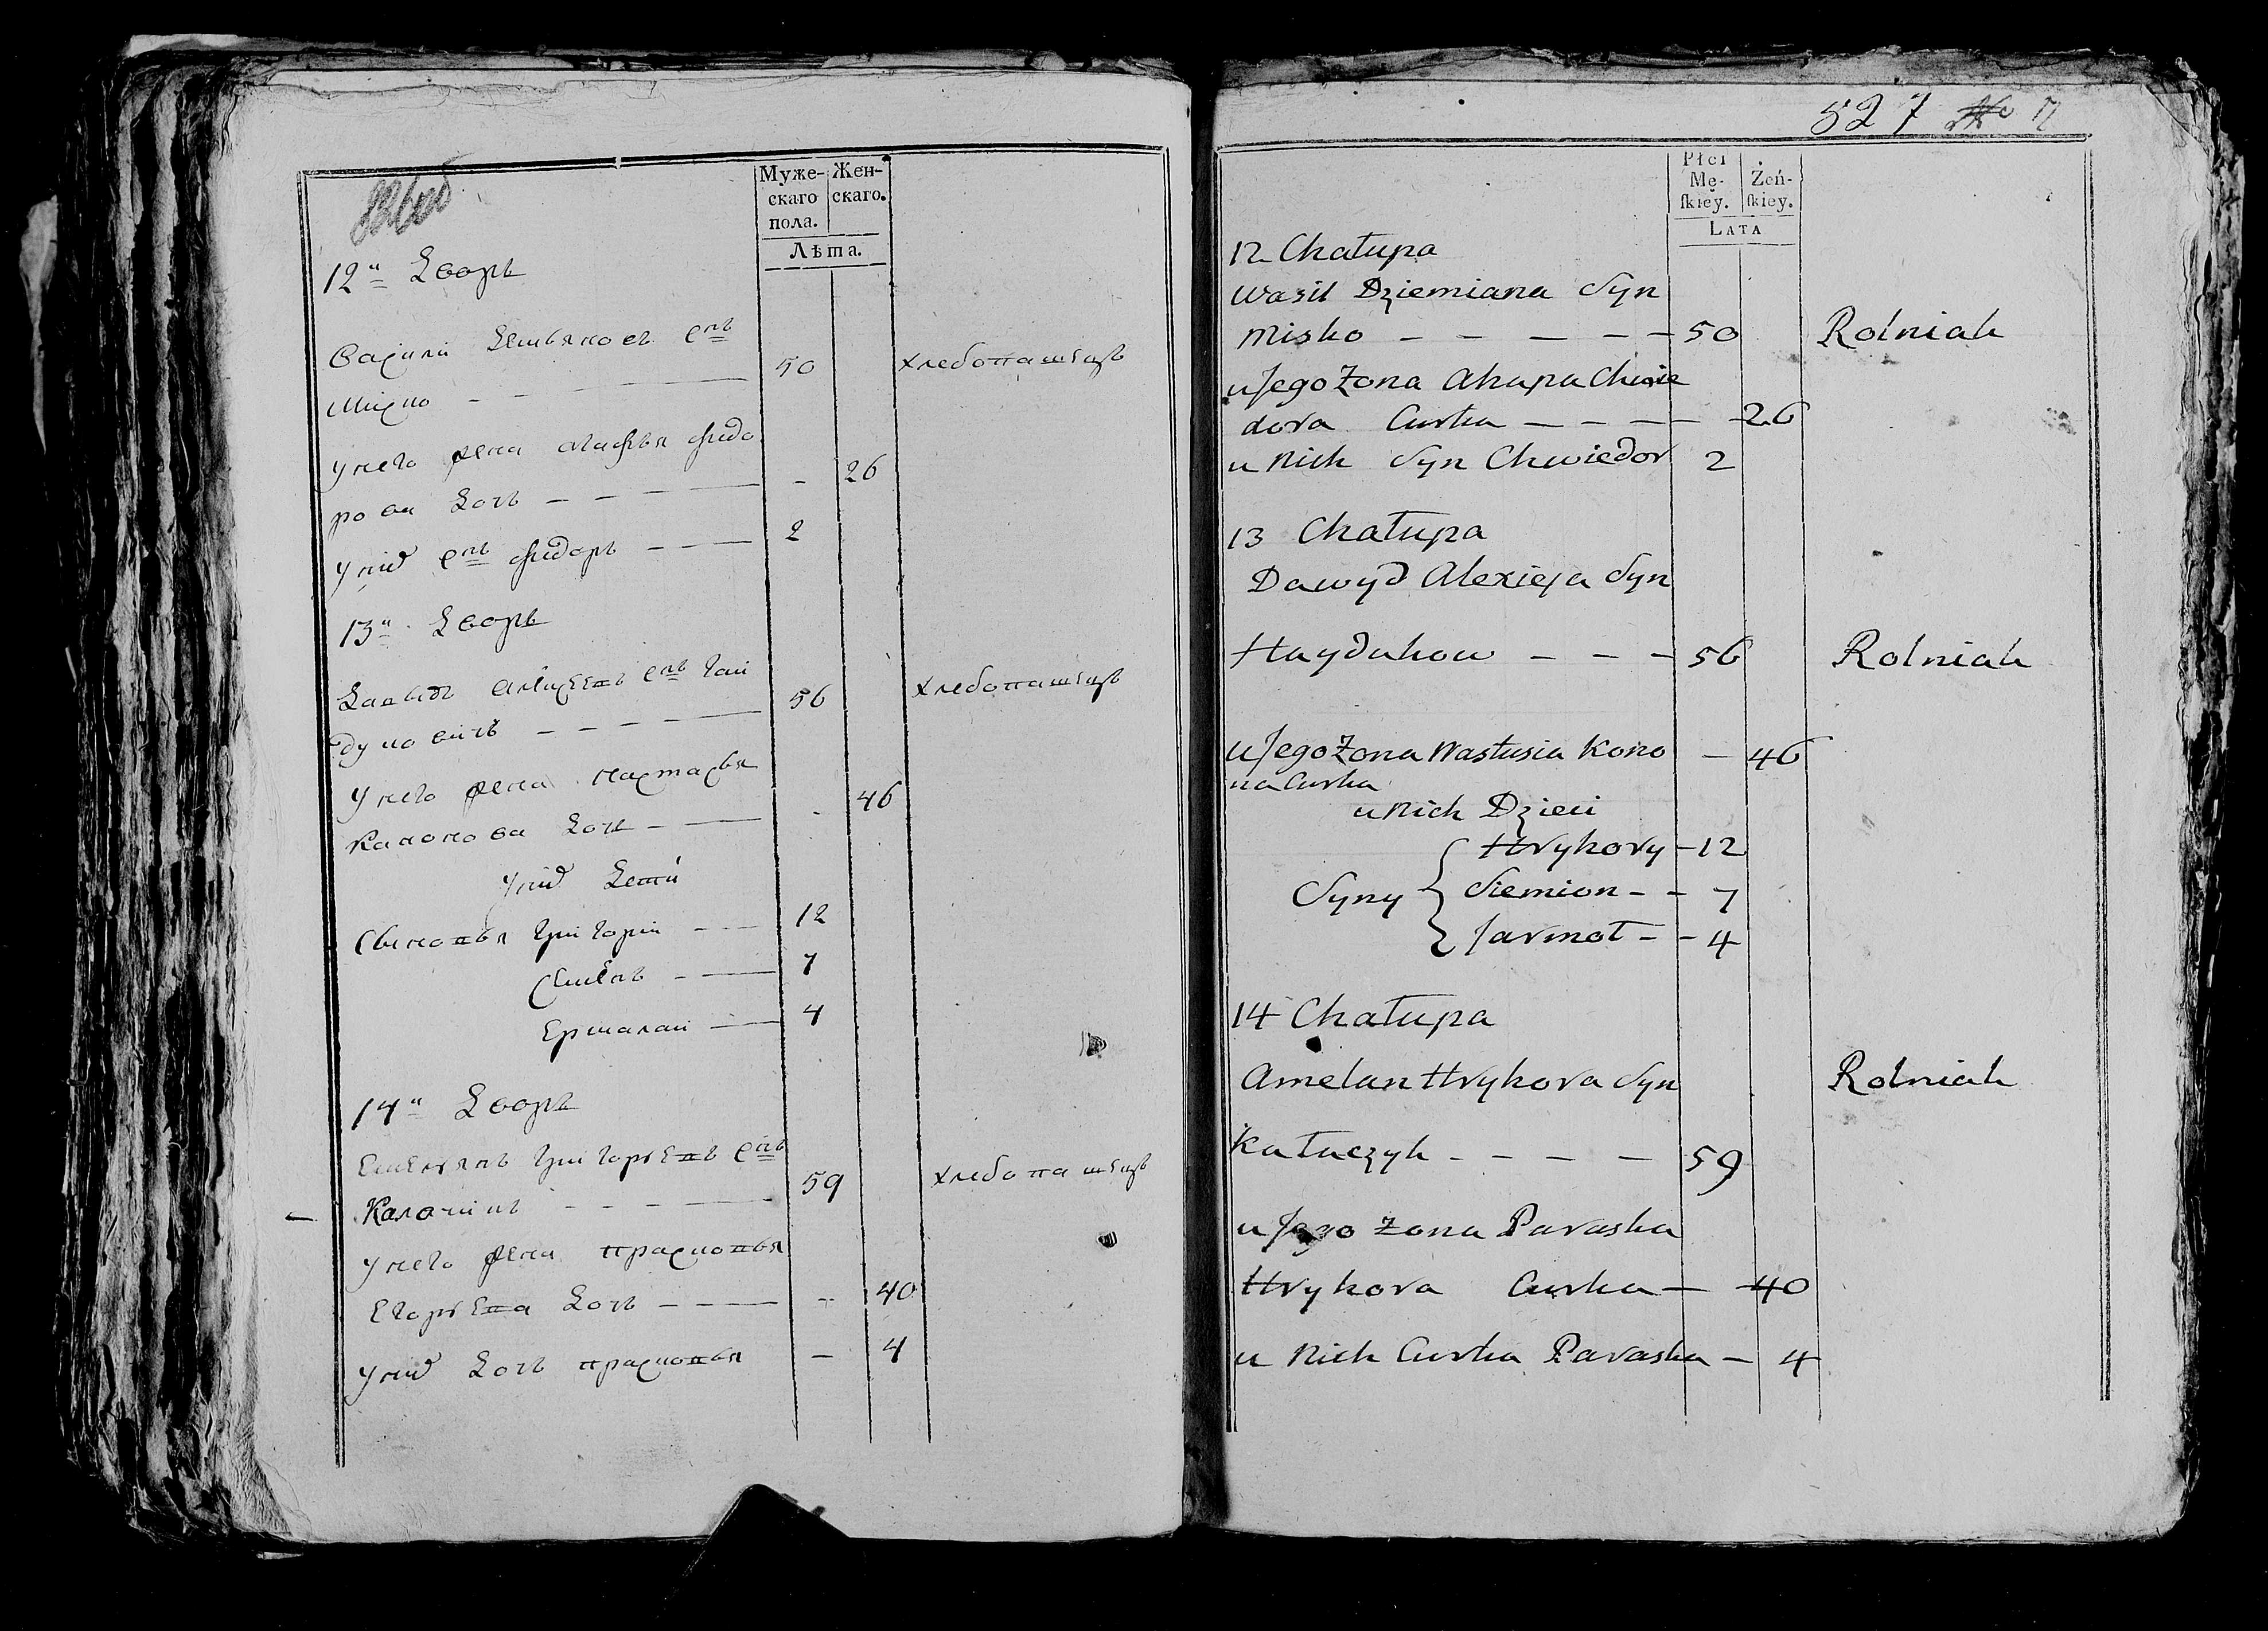 Муже-
скаго
пола.
Жен-
скаго.
Лѣта.
12й Дворъ
Василй Демьяновъ снъ
Миско — — — 50 хлебопашецъ
У него жена Агафья Фидо
рова Дочь — — — - 26
У них снъ Фидоръ — — 2
13й Дворъ
Давыдъ Алексеевъ снъ Гай
дуковичъ — — — 56 хлебопашецъ
У него жена Настасья
Кононова Дочь — — - 46
У них Дети
Сыновья Григорий — — 12
Семенъ — — 7
Ермалай — — 4
14й Дворъ
Емельянъ Григорьевъ снъ
Калачикъ — — — 59 хлебопашецъ
У него жена Прасковья
Егорьева Дочь — — — - 40
У них Дочь Прасковья — 4
527
Płci
Mę-
ſkiey.
Żeń-
ſkiey.
LATA
12 Chałupa
Wasil Dziemiana Syn
Misko — — — — — 50 Rolniak
u Jego Żona Ahapa Chwie
dora Curka — — — — 26
u Nich Syn Chwiedor 2
13 Chałupa
Dawyd Alexieja Syn
Haydukow — — — 56 Rolniak
u Jego Żona Nastusia Kono
na Curka — 46
u Nich Dzieci
Syny
Hrykory — 12
Siemion — — 7
Jarmoł — — 4
14 Chałupa
Amelan Hrykora Syn Rolniak
Kałaczyk — — — — 59
u Jego Żona Paraska
Hrykora Curka — 40
u Nich Curka Paraska — 4